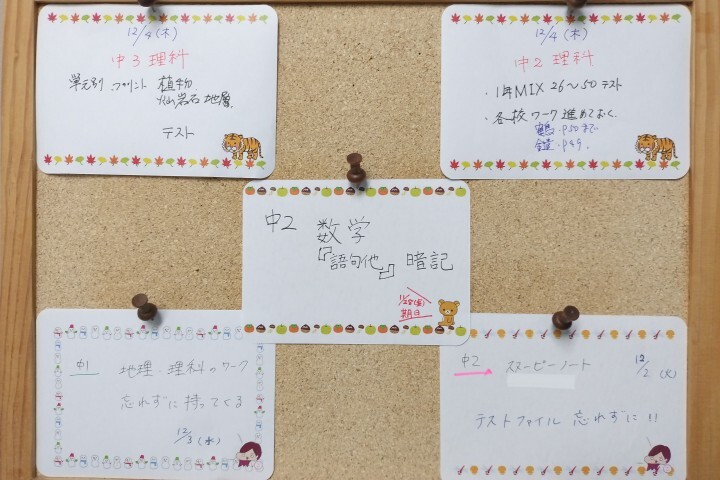 12/4(木)
中3 理科
単元別 プリント 植物
火山岩石 地層
テスト
12/4(木)
中2 理科
・1年MIX 26〜50 テスト
・各校ワーク進めておく.
鶴・P50まで
P49.
中2 数学
『語句他』暗記
11/28(金)
期日
中1 地理・理科のワーク
忘れずに持ってくる
12/3(水)
中2 スヌーピーノート 12/2(火)
テストファイル 忘れずに!!